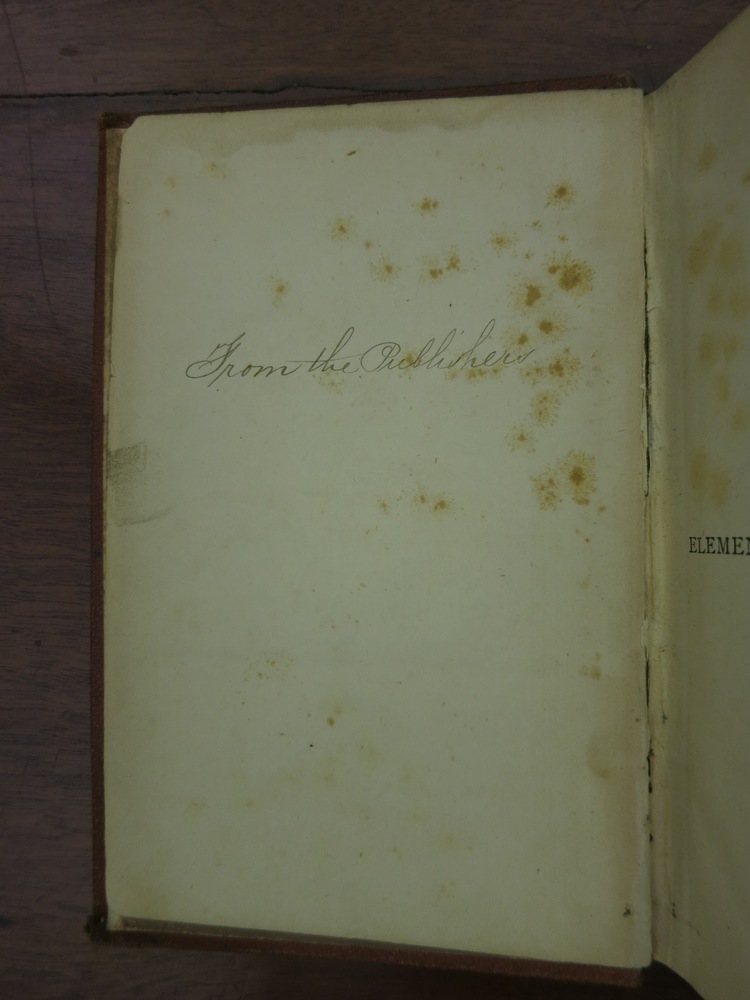 From the Publishers
ELEMEN